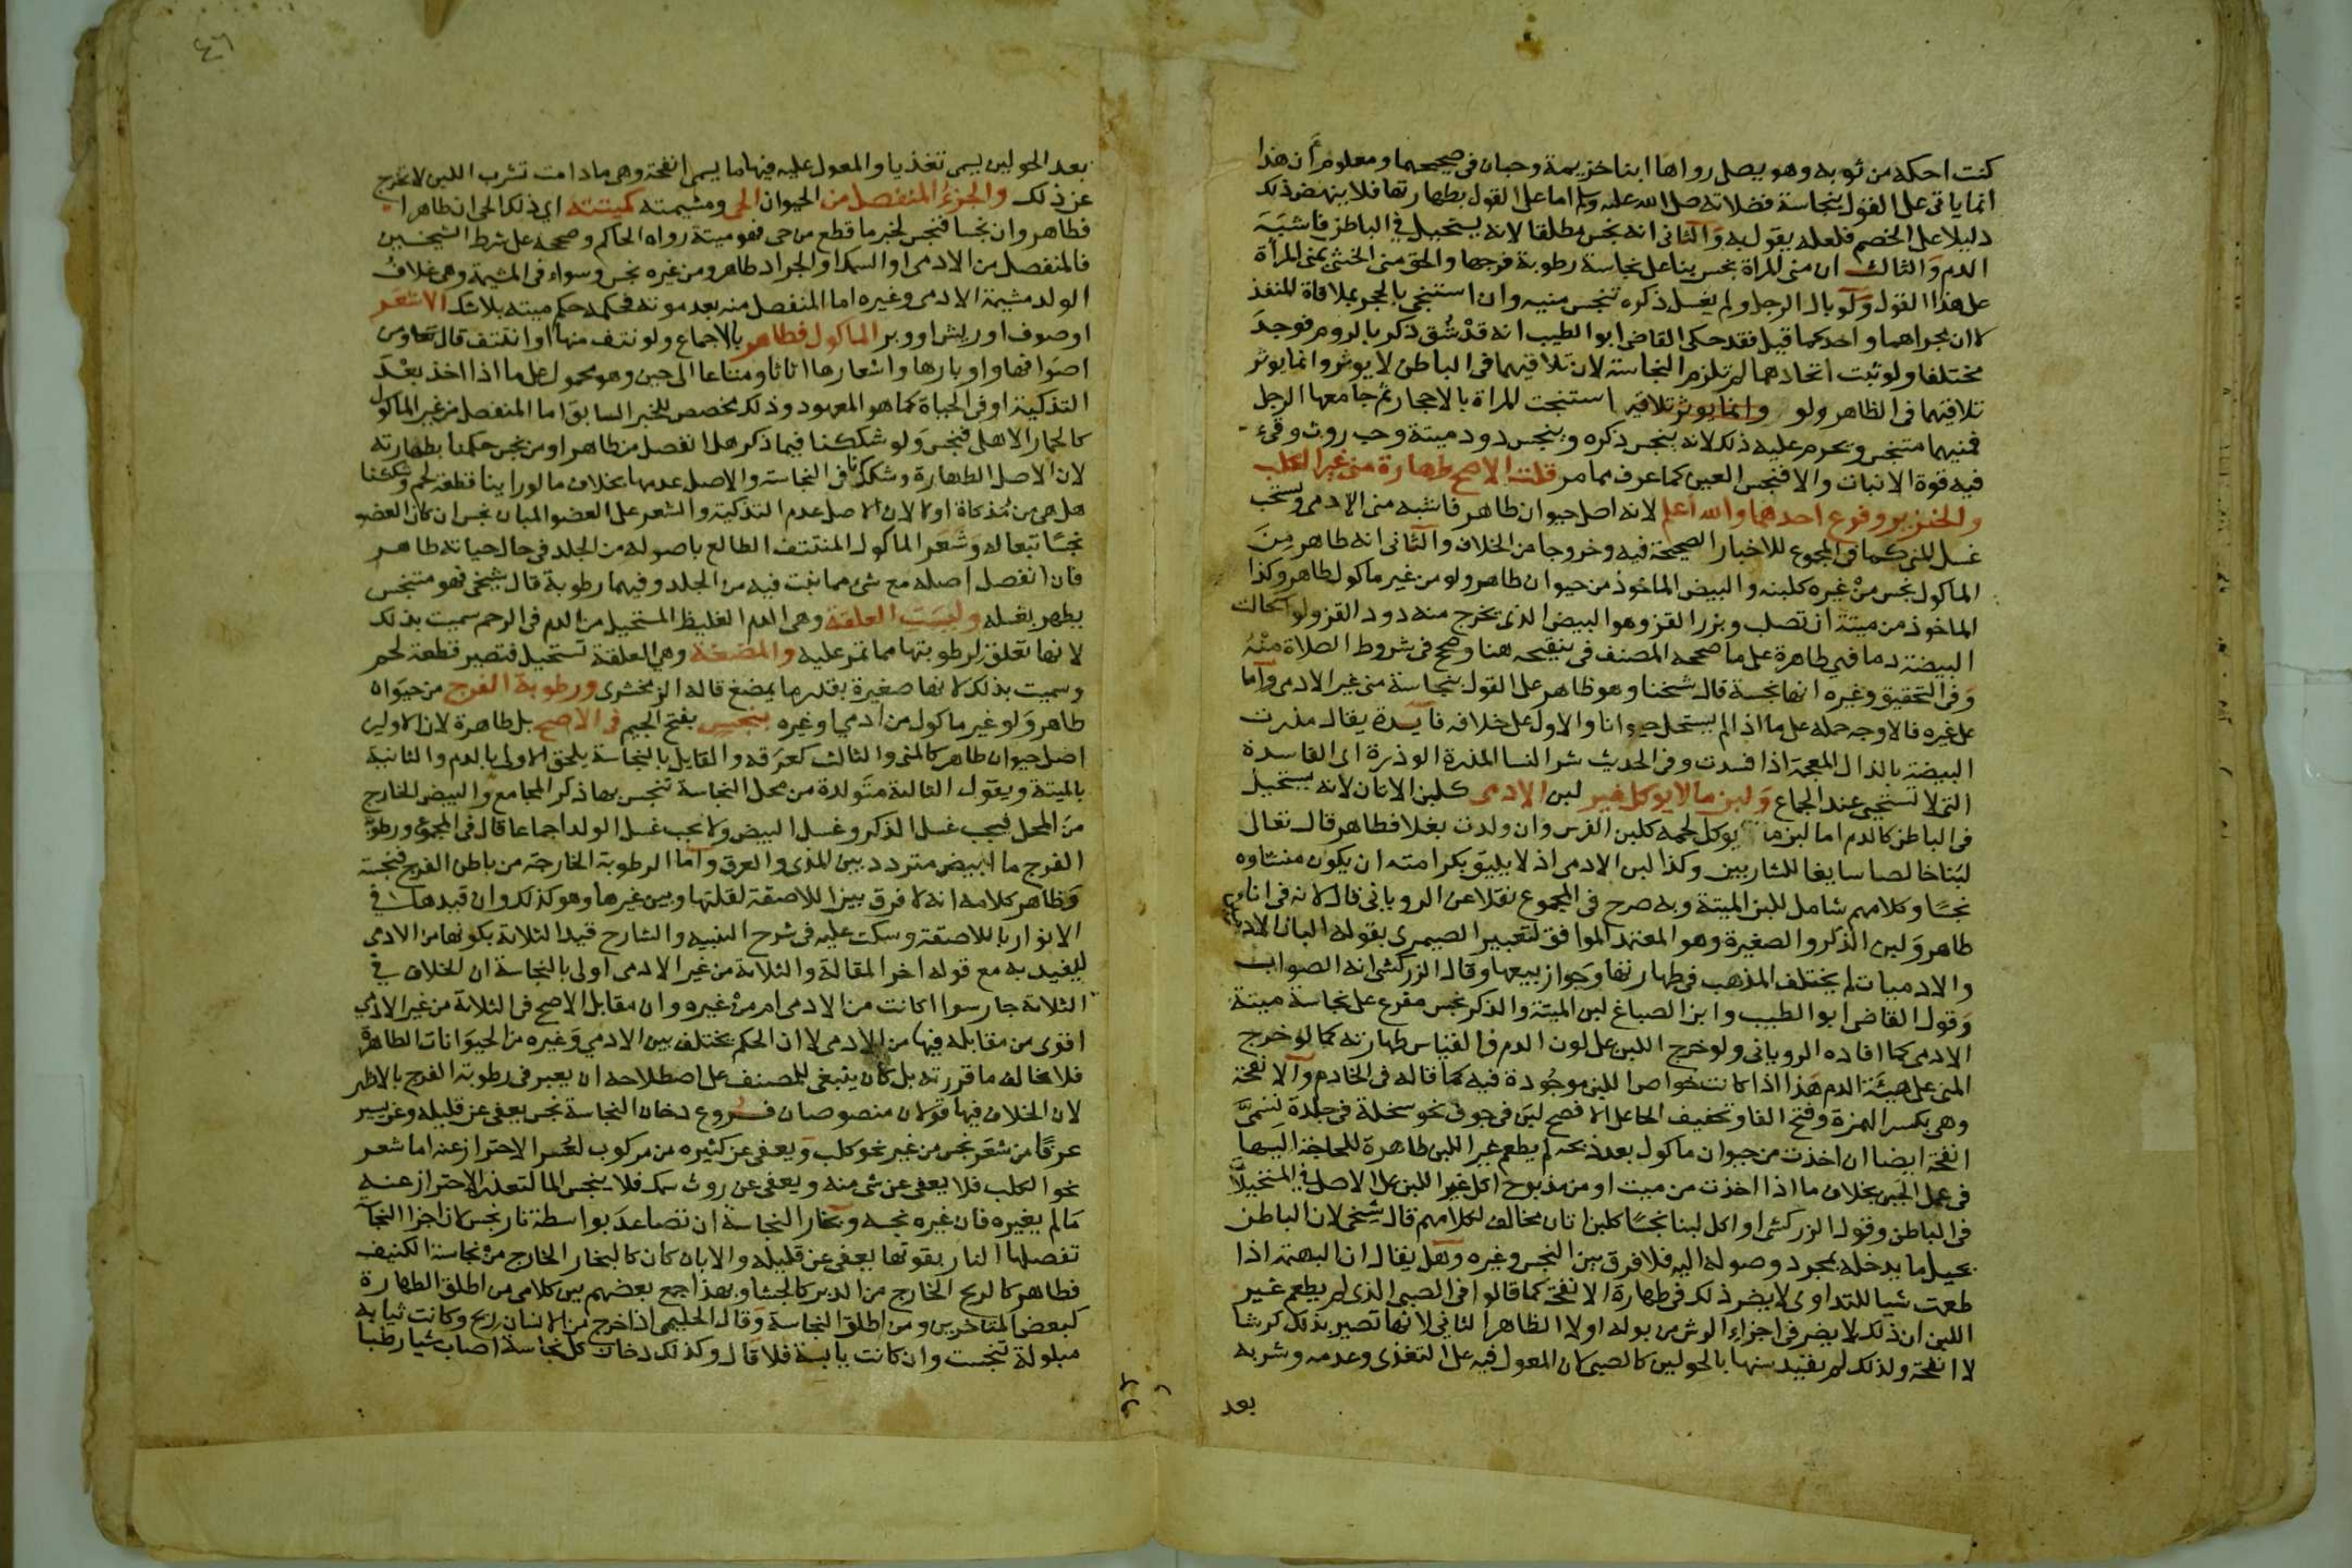 كنت احكه من ثوبه وهو يصلي رواها ابنا خزيمة وحبان في صحيحهما ومعلوم أن هذا
انما ياتي على القول بنجاسة فضلاته صلى الله عليه وسلم اما على القول بطهارتها فلا ينهض ذلك
دليلا على الخصم فلعله يقول به والثاني انه نجس مطلقا لانه يستحيل في الباطن فاشبه
الدم والثالث ان مني المراة نجس بنا على نجاسة رطوبة فرجها والحق مني الخنثى بمني المرأة
على هذا القول ولو بال الرجل ولم يغسل ذكره تنجس منيه وان استنجى بالحجر بملاقاة المنفذ
لا ان مجراهما واحد كما قيل فقد حكى القاضي ابو الطيب انه قد شق ذكر بالروم فوجد
مختلفا ولو ثبت اتحادهما لم تلزم النجاسة لان تلاقيهما في الباطن لا يوثر وانما يوثر
تلاقيهما في الظاهر ولو وانما يوثر تلاقيه استنجت المراة بالاحجار ثم جامعها الرجل
فمنيهما متنجس ويحرم عليه ذلك لانه ينجس ذكره وينجس دود ميتة وحب روث وقيء
فيه قوة الانبات والا فنجس العين كما عرف مما مر قلت الاصح طهارة مني غير الكلب
والخنزير وفرع احدهما والله اعلم لانه اصل حيوان طاهر فاشبه مني الادمي ويستحب
غسل المني كما في المجموع للاخبار الصحيحة فيه وخروجا من الخلاف والثاني انه طاهر من
الماكول نجس من غيره كلبنه والبيض الماخوذ من حيوان طاهر ولو من غير ماكول طاهر وكذا
الماخوذ من ميتة ان تصلب وبزر القز وهو البيض الذي يخرج منه دود القز ولو استحالت
البيضة دما فهي طاهرة على ما صححه المصنف في تنقيحه هنا وصحح في شروط الصلاة منه
وفي التحقيق وغيره انها نجسة قال شيخنا وهو ظاهر على القول بنجاسة مني غير الادمي واما
على غيره فالاوجه حمله على ما اذا لم يستحل حيوانا والاول على خلافه فايدة يقال مذرت
البيضة بالذال المعجمة اذا فسدت وفي الحديث شر النسا المذرة الوذرة اي الفاسدة
التي لا تستحي عند الجماع ولبن ما لا يوكل غير لبن الادمي كلبن الاتان لانه يستحيل
في الباطن كالدم اما لبن ما يوكل لحمه كلبن الفرس وان ولدت بغلا فطاهر قال تعالى
لبنا خالصا سايغا للشاربين وكذا لبن الادمي اذ لا يليق بكرامته ان يكون منشاوه
نجسا وكلامهم شامل للبن الميتة وبه صرح في المجموع نقلا عن الروياني قال لانه في اناء
طاهر ولبن الذكر والصغيرة وهو المعتمد الموافق لتعبير الصيمري بقوله البان الادميين
والادميات لم يختلف المذهب في طهارتها وجواز بيعها وقال الزركشي انه الصواب
وقول القاضي ابو الطيب وابن الصباغ لبن الميتة والذكر نجس مفرع على نجاسة ميتة
الادمي كما افاده الروياني ولو خرج اللبن على لون الدم فالقياس طهارته كما لو خرج
المني على هيئة الدم هذا اذا كانت خواص اللبن موجودة فيه كما قاله في الخادم والانفحة
وهي بكسر الهمزة وفتح الفا وتخفيف الحا على الافصح لبن في جوف نحو سخلة في جلدة تسمى
انفحة ايضا ان اخذت من حيوان ماكول بعد ذبحه لم يطعم غير اللبن طاهرة للحاجة اليها
في عمل الجبن بخلاف ما اذا اخذت من ميت او من مذبوح اكل غير اللبن على الاصل في المستحيلا
في الباطن وقول الزركشي او اكل لبنا نجسا كلبن اتان مخالف لكلامهم قال شيخي لان الباطن
يحيل ما يدخله بمجرد وصوله اليه فلا فرق بين النجس وغيره وهل يقال ان البهمة اذا
طعمت شيا للتداوي لا يضر ذلك في طهارة الانفحة كما قالوا في الصبي الذي لم يطعم غير
اللبن ان ذلك لا يضر في اجزاء الرش من بوله اولا الظاهر الثاني لانها تصير بذلك كرشا
لا انفحة ولذلك لم يقيد سنها بالحولين كالصبي لان المعول فيه على التغذي وعدمه وشربه
بعد
٤٦
بعد الحولين يسمى تغذيا والمعول عليه فيها ما يسمى انفحة وهي ما دامت تشرب اللبن لا تخرج
عن ذلك والجزء المنفصل من الحيوان الحي ومشيمته كميتته اي ذلك الحي ان طاهرا
فطاهر وان نجسا فنجس لخبر ما قطع من حي فهو ميتة رواه الحاكم وصححه على شرط الشيخين
فالمنفصل من الادمي او السمك او الجراد طاهر ومن غيره نجس وسواء في المشيمة وهي غلاف
الولد مشيمة الادمي وغيره اما المنفصل منه بعد موته فحكمه حكم ميتته بلا شك الا شعر
او صوف او ريش او وبر الماكول فطاهر بالاجماع ولو نتف منها او انتتف قال تعالى ومن
اصوافها واوبارها واشعارها اثاثا ومتاعا الى حين وهو محمول على ما اذا اخذ بعد
التذكية او في الحياة كما هو المعهود وذلك مخصص للخبر السابق اما المنفصل من غير الماكول
كالحمار الاهلي فنجس ولو شككنا فيما ذكر هل انفصل من طاهر او من نجس حكمنا بطهارته
لان الاصل الطهارة وشككنا في النجاسة والاصل عدمها بخلاف ما لو راينا قطعة لحم وشككنا
هل هي من مذكاة اولا لان الاصل عدم التذكية والشعر على العضو المبان نجس ان كان العضو
نجسا تبعا له وشعر الماكول المنتتف الطالع باصوله من الجلد في حال حياته طاهر
فان انفصل اصله مع شي مما نبت فيه من الجلد وفيهما رطوبة قال شيخي فهو متنجس
يطهر بغسله وليست العلقة وهي الدم الغليظ المستحيل من الدم في الرحم سميت بذلك
لانها تعلق لرطوبتها مما تمر عليه والمضغة وهي العلقة تستحيل فتصير قطعة لحم
وسميت بذلك لانها صغيرة بقدر ما يمضغ قاله الزمخشري ورطوبة الفرج من حيوان
طاهر ولو غير ماكول من ادمي او غيره بنجس بفتح الجيم في الاصح بل طاهرة لان الاولين
اصل حيوان طاهر كالمني والثالث كعرقه والقايل بالنجاسة يلحق الاولى بالدم والثانية
بالميتة ويقول الثالثة متولدة من محل النجاسة تنجس بها ذكر المجامع والبيض الخارج
من المحل فيجب غسل الذكر وغسل البيض ولا يجب غسل الولد اجماعا قال في المجموع ورطوبة
الفرج ما ابيض متردد بين المذي والعرق واما الرطوبة الخارجة من باطن الفرج فنجسة
وظاهر كلامه انه لا فرق بين اللاصقة لقلتها وبين غيرها وهو كذلك وان قيدها في
الانوار باللاصقة وسكت عليه في شرح التنبيه والشارح قيد الثلاثة بكونها من الادمي
ليفيد به مع قوله اخر المقالة والثلاثة من غير الادمي اولى بالنجاسة ان الخلاف في
الثلاثة جار سوا اكانت من الادمي ام من غيره وان مقابل الاصح في الثلاثة من غير الادمي
اقوى من مقابله فيها من الادمي لا ان الحكم يختلف بين الادمي وغيره من الحيوانات الطاهرة
فلا يخالف ما قررته بل كان ينبغي للمصنف على اصطلاحه ان يعبر في رطوبة الفرج بالاظهر
لان الخلاف فيها قولان منصوصان فروع دخان النجاسة نجس يعفى عن قليله وعن يسير
عرفا من شعر نجس من غير نحو كلب ويعفى عن كثيره من مركوب لعسر الاحتراز عنه اما شعر
نحو الكلب فلا يعفى عن شي منه ويعفى عن روث سمك فلا ينجس الما لتعذر الاحتراز عنه
مالم يغيره فان غيره نجسه وبخار النجاسة ان تصاعد بواسطة نار نجس لان اجزا النجاسة
تفصلها النار بقوتها يعفى عن قليله والا بان كان كالبخار الخارج من نجاسة الكنيف
فطاهر كالريح الخارج من الدبر كالجشا وبهذا جمع بعضهم بين كلامي من اطلق الطهارة
كبعض المتاخرين ومن اطلق النجاسة وقال الحليمي اذا خرج من الانسان ريح وكانت ثيابه
مبلولة تنجست وان كانت يابسة فلا قال وكذلك دخان كل نجاسة اصاب شيا رطبا